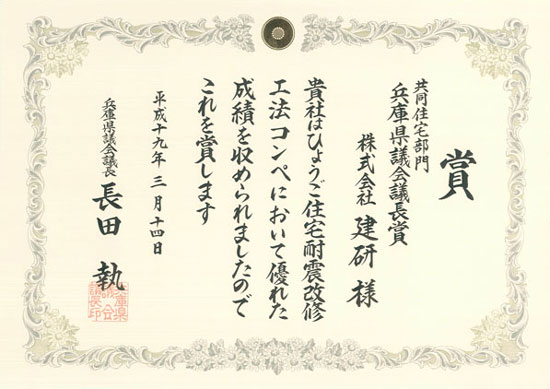 賞
共同住宅部門
兵庫県議会議長賞
株式会社 建研 様
貴社はひょうご住宅耐震改修
工法コンペにおいて優れた
成績を収められましたので
これを賞します
平成十九年 三 月 十四日
兵庫県議会議長 長田 執
兵庫県
議会
議長印